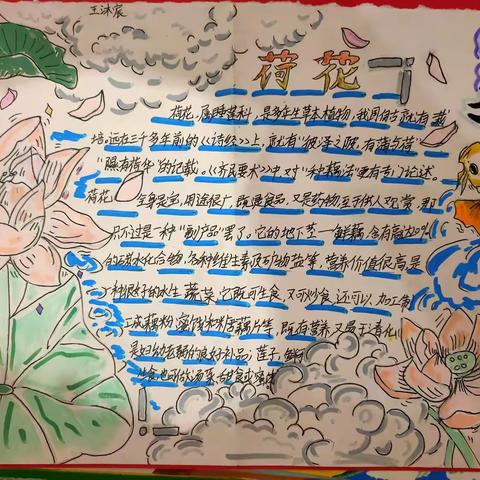 王沐宸
荷花
荷花，属睡莲科，是多年生草本植物，我国自古就有栽
培。远在三千多年前的《诗经》上，就有“彼泽之陂，有蒲与荷”
“隰有荷华”的记载。《齐民要术》中对“种藕法”更有专门论述。
荷花全身是宝，用途很广，既是食品，又是药物，至于供人观赏，那
只不过是一种“副产品”罢了。它的地下茎一鲜藕，含有高达20%
的碳水化合物，各种维生素及矿物盐等，营养价值很高，是
一种很好的水生蔬菜，它既可生食，又可炒食，还可以加工制
成藕粉，蜜饯和糖藕片等，既有营养又易于消化，
是妇幼老弱的良好补品，莲子，鲜
食，也可做汤菜、甜食或蜜饯